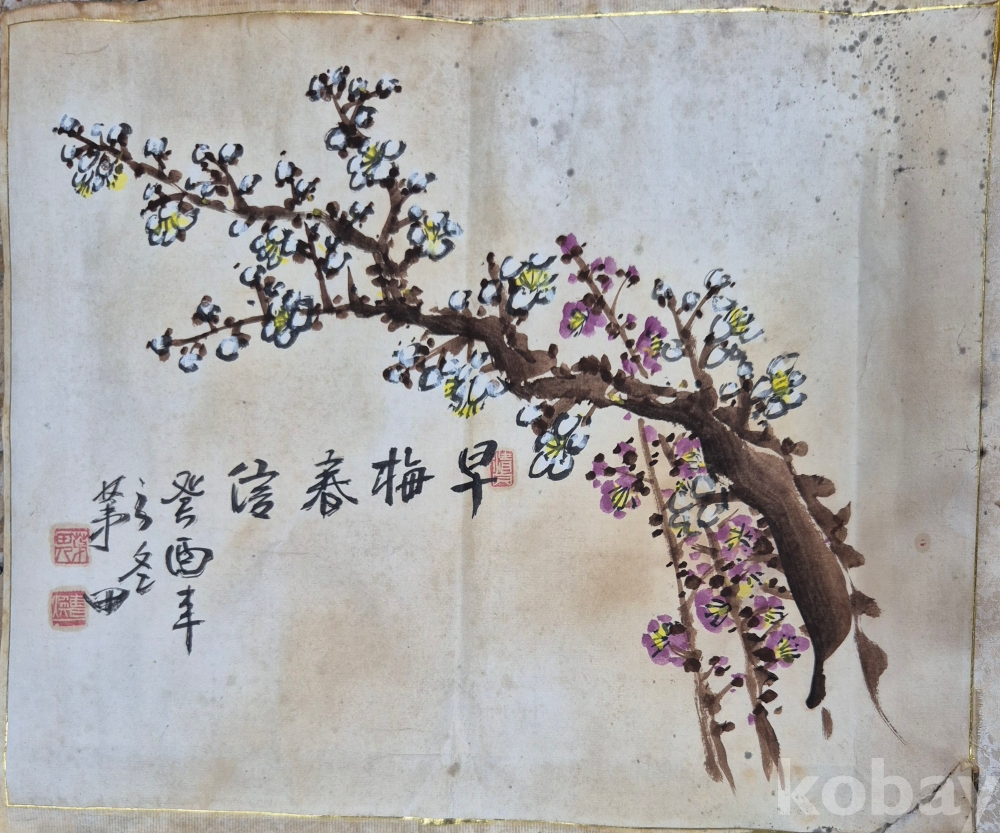 早梅春信
癸酉年
之冬
田
kobay